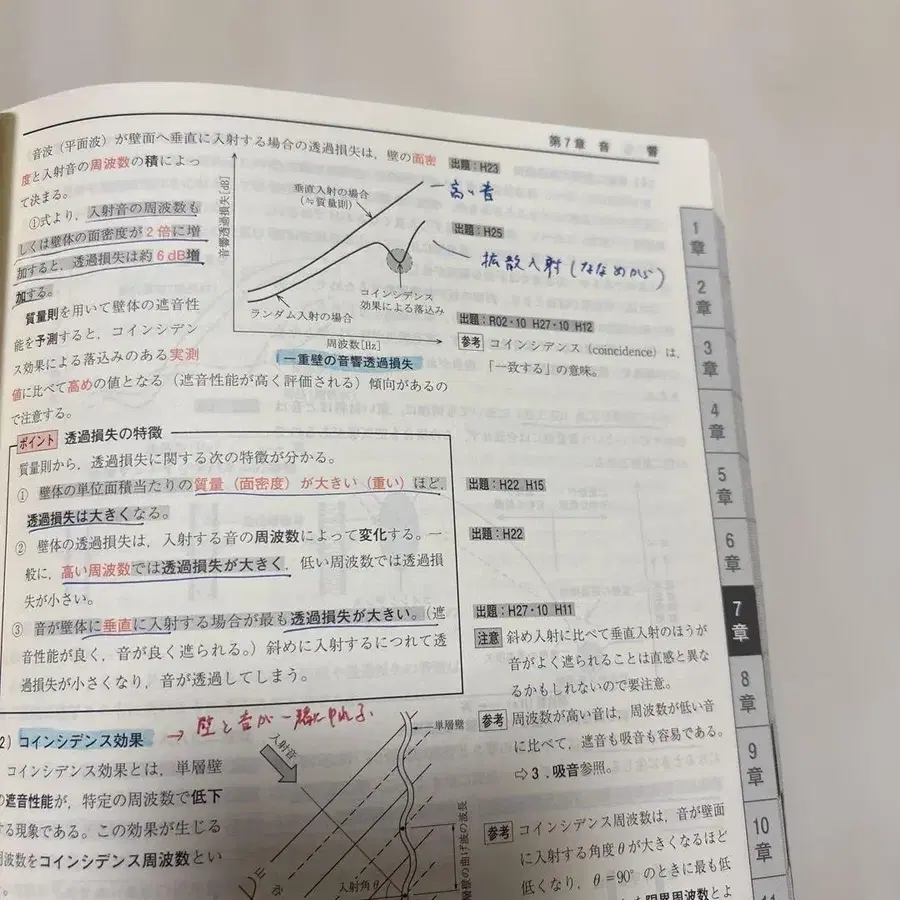 第7章 音 響
音波（平面波）が壁面へ垂直に入射する場合の透過損失は，壁の面密
度と入射音の周波数の積によっ
て決まる。
①式より，入射音の周波数も
しくは壁体の面密度が2倍に増
加すると，透過損失は約6dB増
加する。
質量則を用いて壁体の遮音性
能を予測すると，コインシデン
ス効果による落込みのある実測
値に比べて高めの値となる（遮音性能が高く評価される）傾向があるの
で注意する。
音響透過損失[dB]
垂直入射の場合
（≒質量則）
コインシデンス
効果による落込み
ランダム入射の場合
周波数[Hz]
一重壁の音響透過損失
出題：H23
高い音
出題：H25
拡散入射（ななめから）
出題：R02・10 H27・10 H12
参考 コインシデンス（coincidence）は，
「一致する」の意味。
ポイント 透過損失の特徴
質量則から，透過損失に関する次の特徴が分かる。
① 壁体の単位面積当たりの質量（面密度）が大きい（重い）ほど，
透過損失は大きくなる。
② 壁体の透過損失は，入射する音の周波数によって変化する。一
般に，高い周波数では透過損失が大きく，低い周波数では透過損
失が小さい。
③ 音が壁体に垂直に入射する場合が最も透過損失が大きい。（遮
音性能が良く，音が良く遮られる。）斜めに入射するにつれて透
過損失が小さくなり，音が透過してしまう。
出題：H22 H15
出題：H22
出題：H27・10 H11
注意 斜め入射に比べて垂直入射のほうが
音がよく遮られることは直感と異な
るかもしれないので要注意。
参考 周波数が高い音は，周波数が低い音
に比べて，遮音も吸音も容易である。
⇨3．吸音参照。
参考 コインシデンス周波数は，音が壁面
に入射する角度θが大きくなるほど
低くなり，θ=90°のときに最も低
限界周波数とよ
2）コインシデンス効果
→ 壁と音が一緒にゆれる
コインシデンス効果とは，単層壁
の遮音性能が，特定の周波数で低下
する現象である。この効果が生じる
周波数をコインシデンス周波数とい
入射音
単層壁
入射角θ
壁の曲げ波の波長
1章
2章
3章
4章
5章
6章
7章
8章
9章
10章